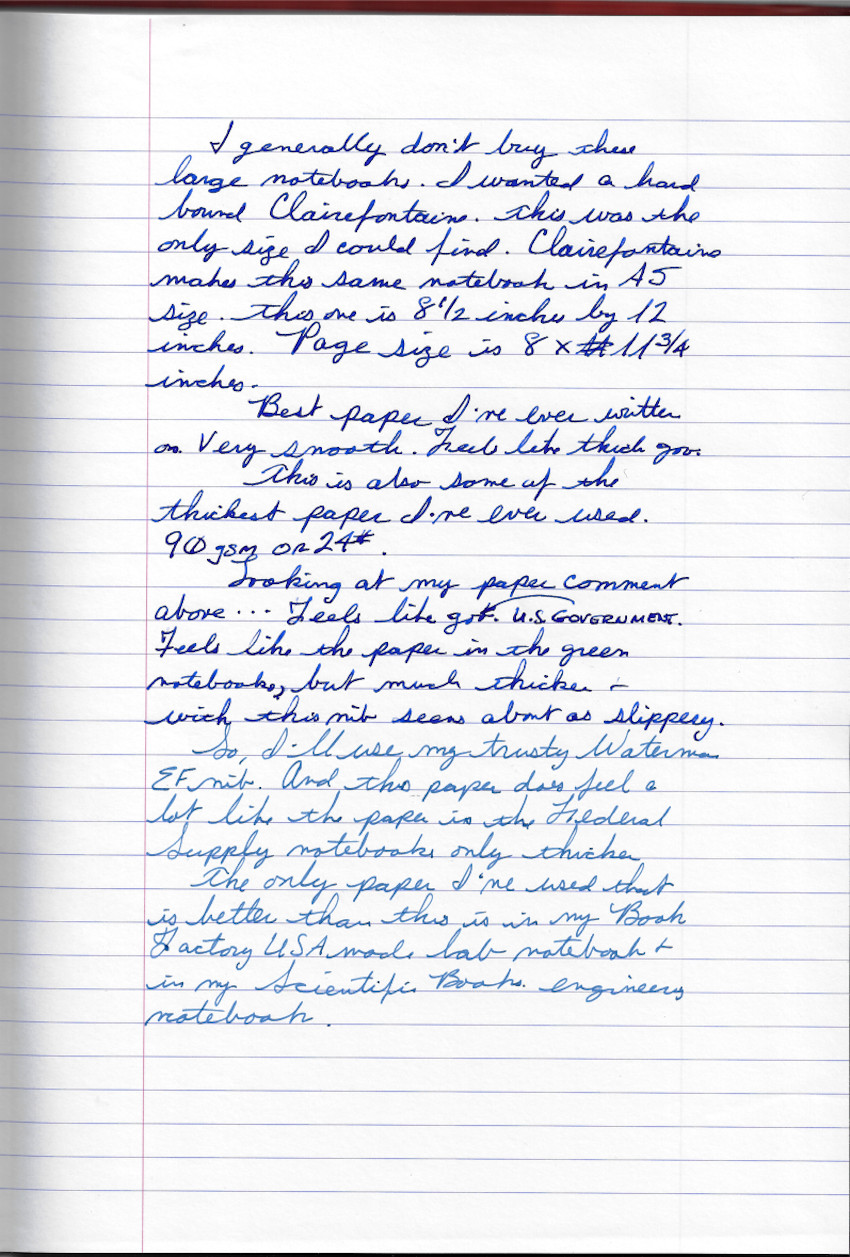 I generally don't buy these
large notebooks. I wanted a hard
bound Clairefontaine. This was the
only size I could find. Clairefontaine
makes this same notebook in A5
size. This one is 8 1/2 inches by 12
inches. Page size is 8 x 11 3/4
inches.
Best paper I've ever written
on. Very smooth. Feels like thick gov.
This is also some of the
thickest paper I've ever used.
90 gsm or 24#.
Looking at my paper comment
above... Feels like got. U.S. GOVERNMENT.
Feels like the paper in the green
notebooks, but much thicker -
with this nib seems about as slippery.
So, I'll use my trusty Waterman
EF nib. And this paper does feel a
lot like the paper in the Federal
Supply notebooks only thicker
The only paper I've used that
is better than this is in my Book
Factory USA made lab notebook +
in my Scientific Books. engineers
notebook.